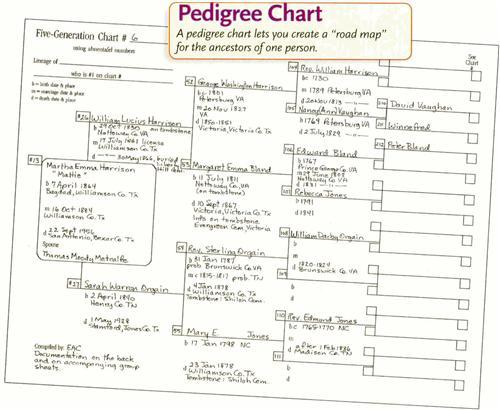 Pedigree Chart
A pedigree chart lets you create a “road map”
for the ancestors of one person.
Five-Generation Chart # 6
using ahnentafel numbers
Lineage of
who is #1 on chart #
b = birth date & place
m = marriage date & place
d = death date & place
See
Chart
#
#13
Martha Emma Harrison
"Mattie"
b 7 April 1864
Bagdad, Williamson Co. Tx
m 16 Oct 1884
Williamson Co. Tx
d 22 Sept 1956
San Antonio, Bexar Co. Tx
Spouse
Thomas Moody Metcalfe
#26 William Lucius Harrison
b 29 Oct 1830 on tombstone
Nottoway Co. VA
m 17 July 1861 license
Williamson Co. Tx
d 30 May 1866, buried
#27 Sarah Warren Orgain
b 2 April 1840
Henry Co. TN
d 1 May 1928
Stamford, Jones Co. Tx
52 George Washington Harrison
bc 1801
Petersburg VA
m 20 Nov 1827
VA
d 1850-1851
Victoria, Victoria Co. Tx
53 Margaret Emma Bland
b 11 July 1811
Nottoway Co. VA
(on tombstone)
d 10 Sept 1867
Victoria, Victoria Co. Tx
Info on tombstone
Evergreen Cem, Victoria
54 Rev. Sterling Orgain
b 31 Jan 1787
prob Brunswick Co. VA
m c 1815-1817 prob. TN
d 4 Jan 1878
Williamson Co. Tx
Tombstone: Shiloh Cem.
55 Mary E. Jones
b 17 Jan 1798 NC
d 23 Jan 1878
Williamson Co. Tx
Tombstone: Shiloh Cem.
104 Rev. William Harrison
bc 1730
m 1789 Petersburg VA
d 20 Nov 1813
105 Nancy (Ann) Vaughan
b 1769 Petersburg VA
d 2 July 1829
106 Edward Bland
b 1767
Prince George Co. VA
Nottoway Co. VA
d 1831
107 Rebecca Jones
b 1791
d 1841
108 William Darby Orgain
b
m
d 1820-1824
Brunswick Co. VA
109
b
d
110 Rev. Edmund Jones
bc 1765-1770 NC
m
d after 1 Feb 1836
Madison Co. TN
111
b
d
210 David Vaughan
211 Winnefred
212 Peter Bland
Compiled by: EAC
Documentation on the back
and on accompanying group
sheets.